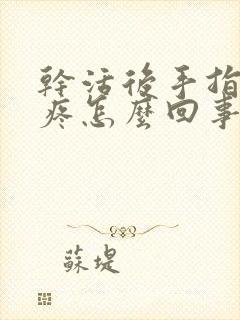 幹活後手指
疼怎麼回事
蘇堤